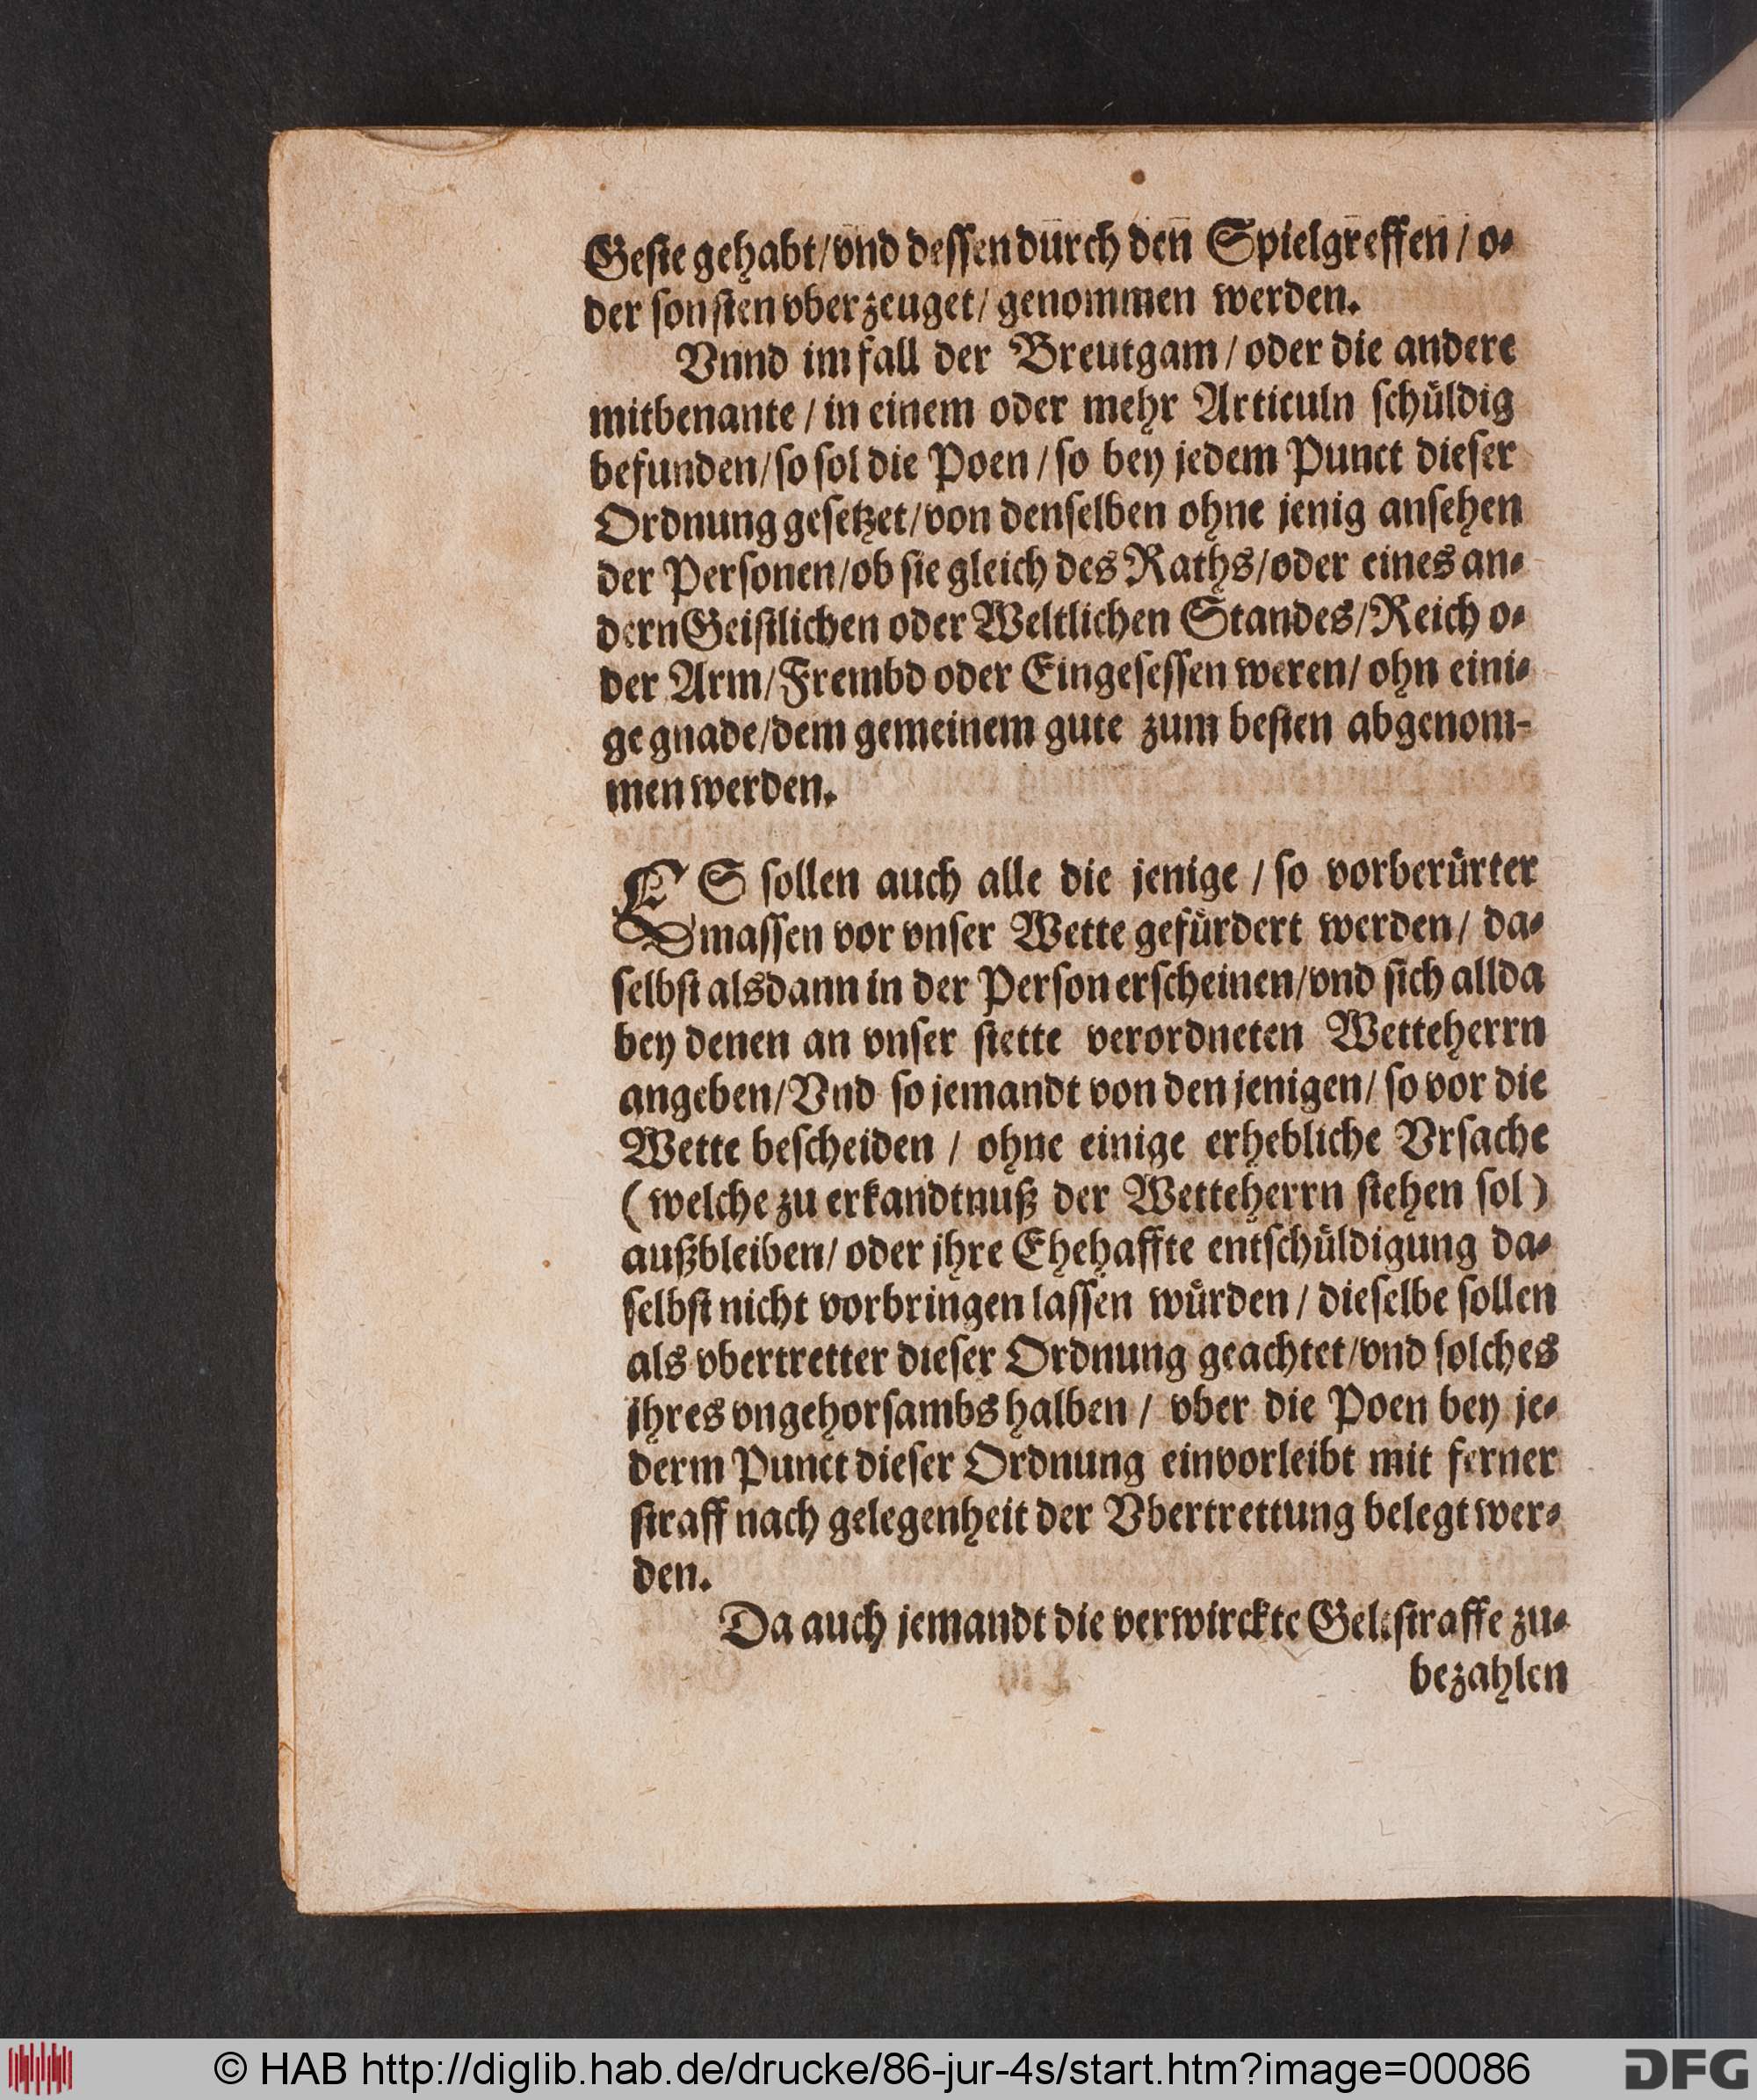 Geſte gehabt/vnd deſſen durch den Spielgreffen / o⸗
der ſonſten vberzeuget/ genommen werden.
Vnnd im fall der Breutgam / oder die andere
mitbenante / in einem oder mehr Articuln ſchuͤldig
befunden/ ſo ſol die Poen / ſo bey jedem Punct dieſer
Ordnung geſetzet/von denſelben ohne jenig anſehen
der Perſonen/ob ſie gleich des Raths/oder eines an⸗
dern Geiſtlichen oder Weltlichen Standes/Reich o⸗
der Arm/Frembd oder Eingeſeſſen weren/ ohn eini⸗
ge gnade/dem gemeinem gute zum beſten abgenom-
men werden.
ES ſollen auch alle die jenige / ſo vorberuͤrter
maſſen vor vnſer Wette gefuͤrdert werden/ da⸗
ſelbſt alsdann in der Perſon erſcheinen/vnd ſich allda
bey denen an vnſer ſtette verordneten Wetteherrn
angeben/Vnd ſo jemandt von den jenigen/ ſo vor die
Wette beſcheiden / ohne einige erhebliche Vrſache
(welche zu erkandtnuß der Wetteherrn ſtehen ſol)
außbleiben/ oder jhre Ehehaffte entſchuͤldigung da⸗
ſelbſt nicht vorbringen laſſen wuͤrden / dieſelbe ſollen
als vbertretter dieſer Ordnung geachtet/vnd ſolches
jhres vngehorſambs halben / vber die Poen bey je⸗
derm Punct dieſer Ordnung einvorleibt mit ferner
ſtraff nach gelegenheit der Vbertrettung belegt wer⸗
den.
Da auch jemandt die verwirckte Geltſtraffe zu⸗
bezahlen
© HAB http://diglib.hab.de/drucke/86-jur-4s/start.htm?image=00086
DFG